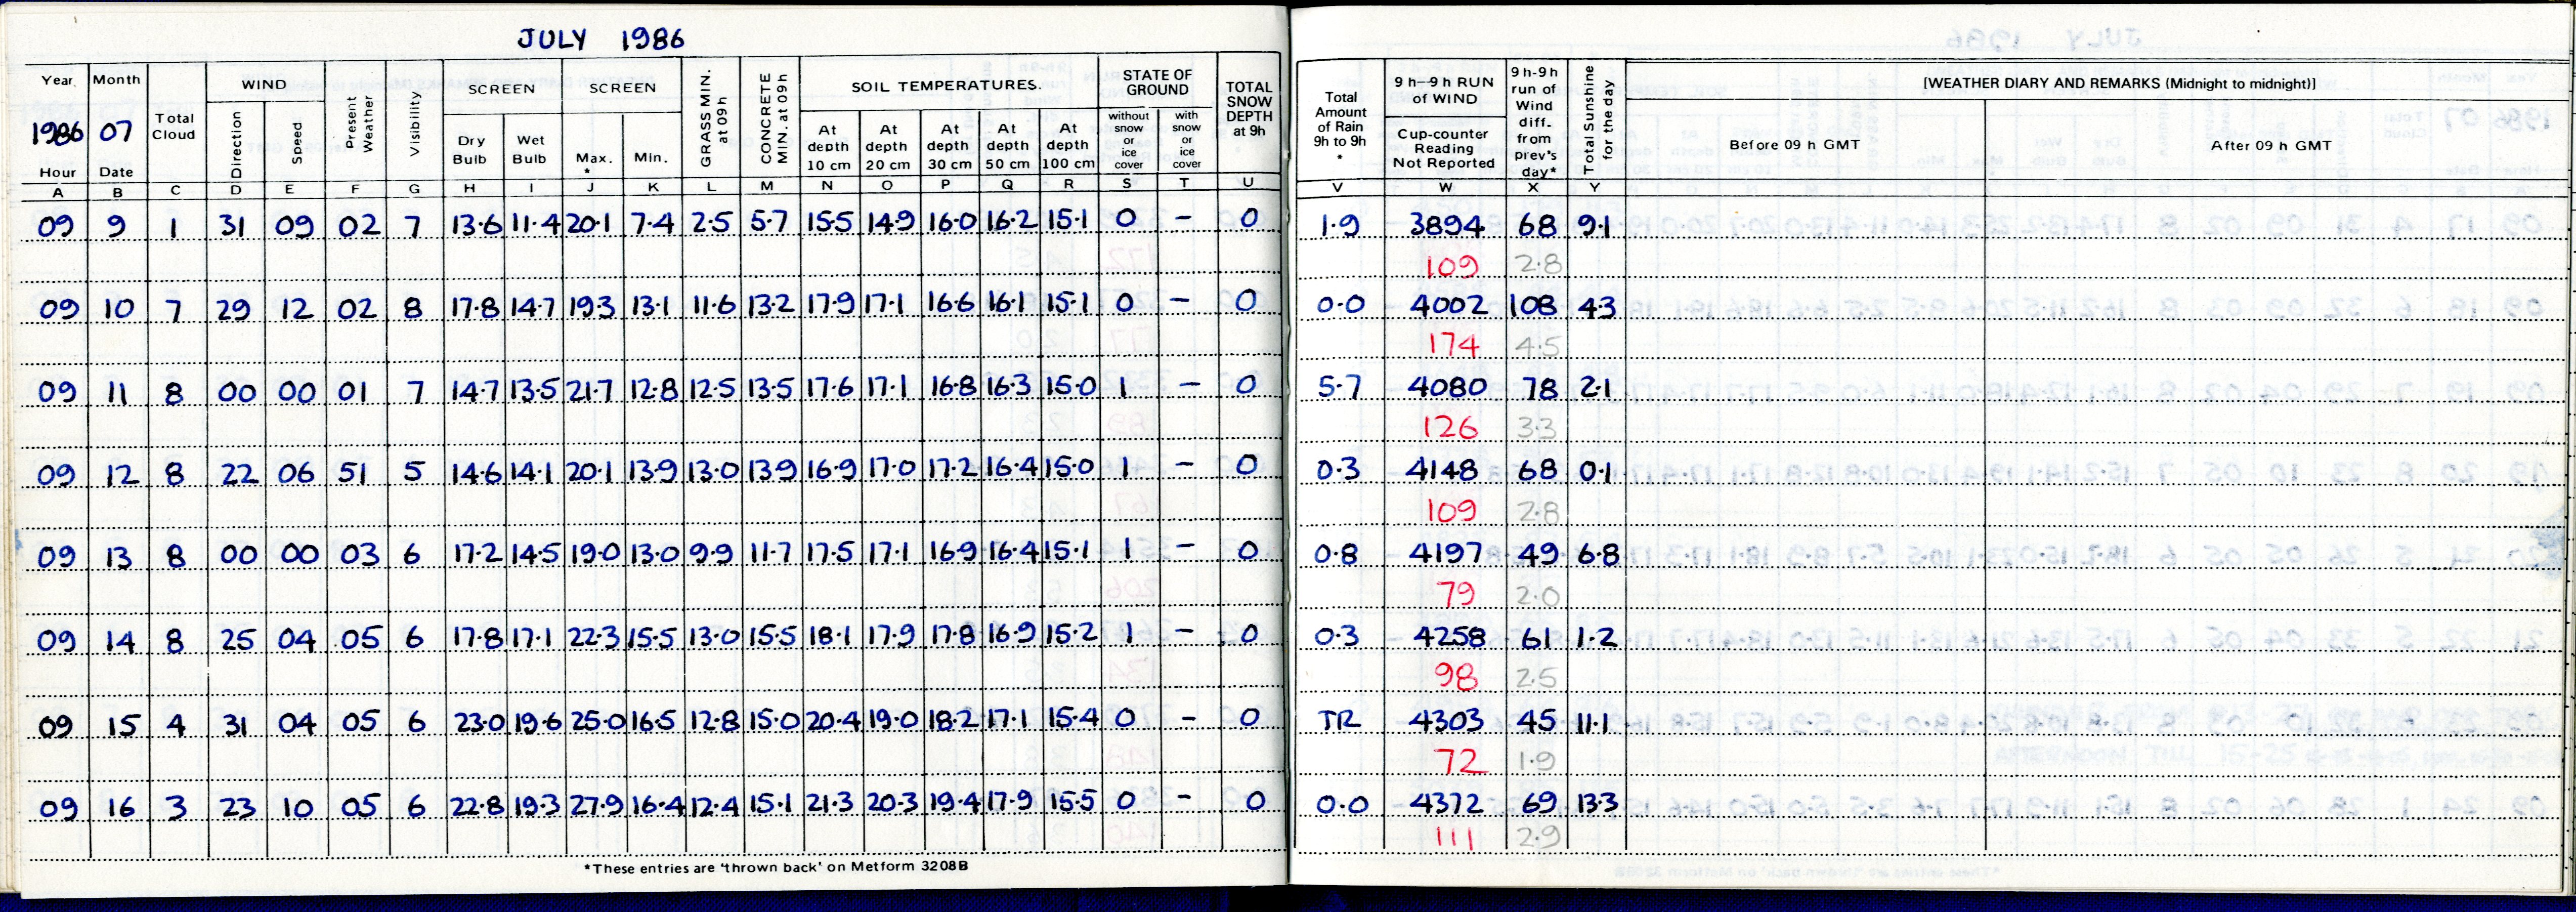 JULY 1986
Year Month Total Cloud WIND Present Weather Visibility SCREEN SCREEN GRASS MIN. at 09h CONCRETE MIN. at 09h SOIL TEMPERATURES. STATE OF GROUND TOTAL SNOW DEPTH at 9h Total Amount of Rain 9h to 9h * 9h—9h RUN of WIND 9h-9h run of Wind diff. from prev's day* Total Sunshine for the day [WEATHER DIARY AND REMARKS (Midnight to midnight)]
1986 07 Direction Speed Dry Bulb Wet Bulb Max. * Min. At depth 10 cm At depth 20 cm At depth 30 cm At depth 50 cm At depth 100 cm without snow or ice cover with snow or ice cover Cup-counter Reading Not Reported Before 09 h GMT After 09 h GMT
Hour Date
A B C D E F G H I J K L M N O P Q R S T U V W X Y
09 9 1 31 09 02 7 13.6 11.4 20.1 7.4 2.5 5.7 15.5 14.9 16.0 16.2 15.1 0 - 0 1.9 3894 68 9.1
109 2.8
09 10 7 29 12 02 8 17.8 14.7 19.3 13.1 11.6 13.2 17.9 17.1 16.6 16.1 15.1 0 - 0 0.0 4002 108 4.3
174 4.5
09 11 8 00 00 01 7 14.7 13.5 21.7 12.8 12.5 13.5 17.6 17.1 16.8 16.3 15.0 1 - 0 5.7 4080 78 2.1
126 3.3
09 12 8 22 06 51 5 14.6 14.1 20.1 13.9 13.0 13.9 16.9 17.0 17.2 16.4 15.0 1 - 0 0.3 4148 68 0.1
109 2.8
09 13 8 00 00 03 6 17.2 14.5 19.0 13.0 9.9 11.7 17.5 17.1 16.9 16.4 15.1 1 - 0 0.8 4197 49 6.8
79 2.0
09 14 8 25 04 05 6 17.8 17.1 22.3 15.5 13.0 15.5 18.1 17.9 17.8 16.9 15.2 1 - 0 0.3 4258 61 1.2
98 2.5
09 15 4 31 04 05 6 23.0 19.6 25.0 16.5 12.8 15.0 20.4 19.0 18.2 17.1 15.4 0 - 0 TR 4303 45 11.1
72 1.9
09 16 3 23 10 05 6 22.8 19.3 27.9 16.4 12.4 15.1 21.3 20.3 19.4 17.9 15.5 0 - 0 0.0 4372 69 13.3
111 2.9
*These entries are 'thrown back' on Metform 3208B